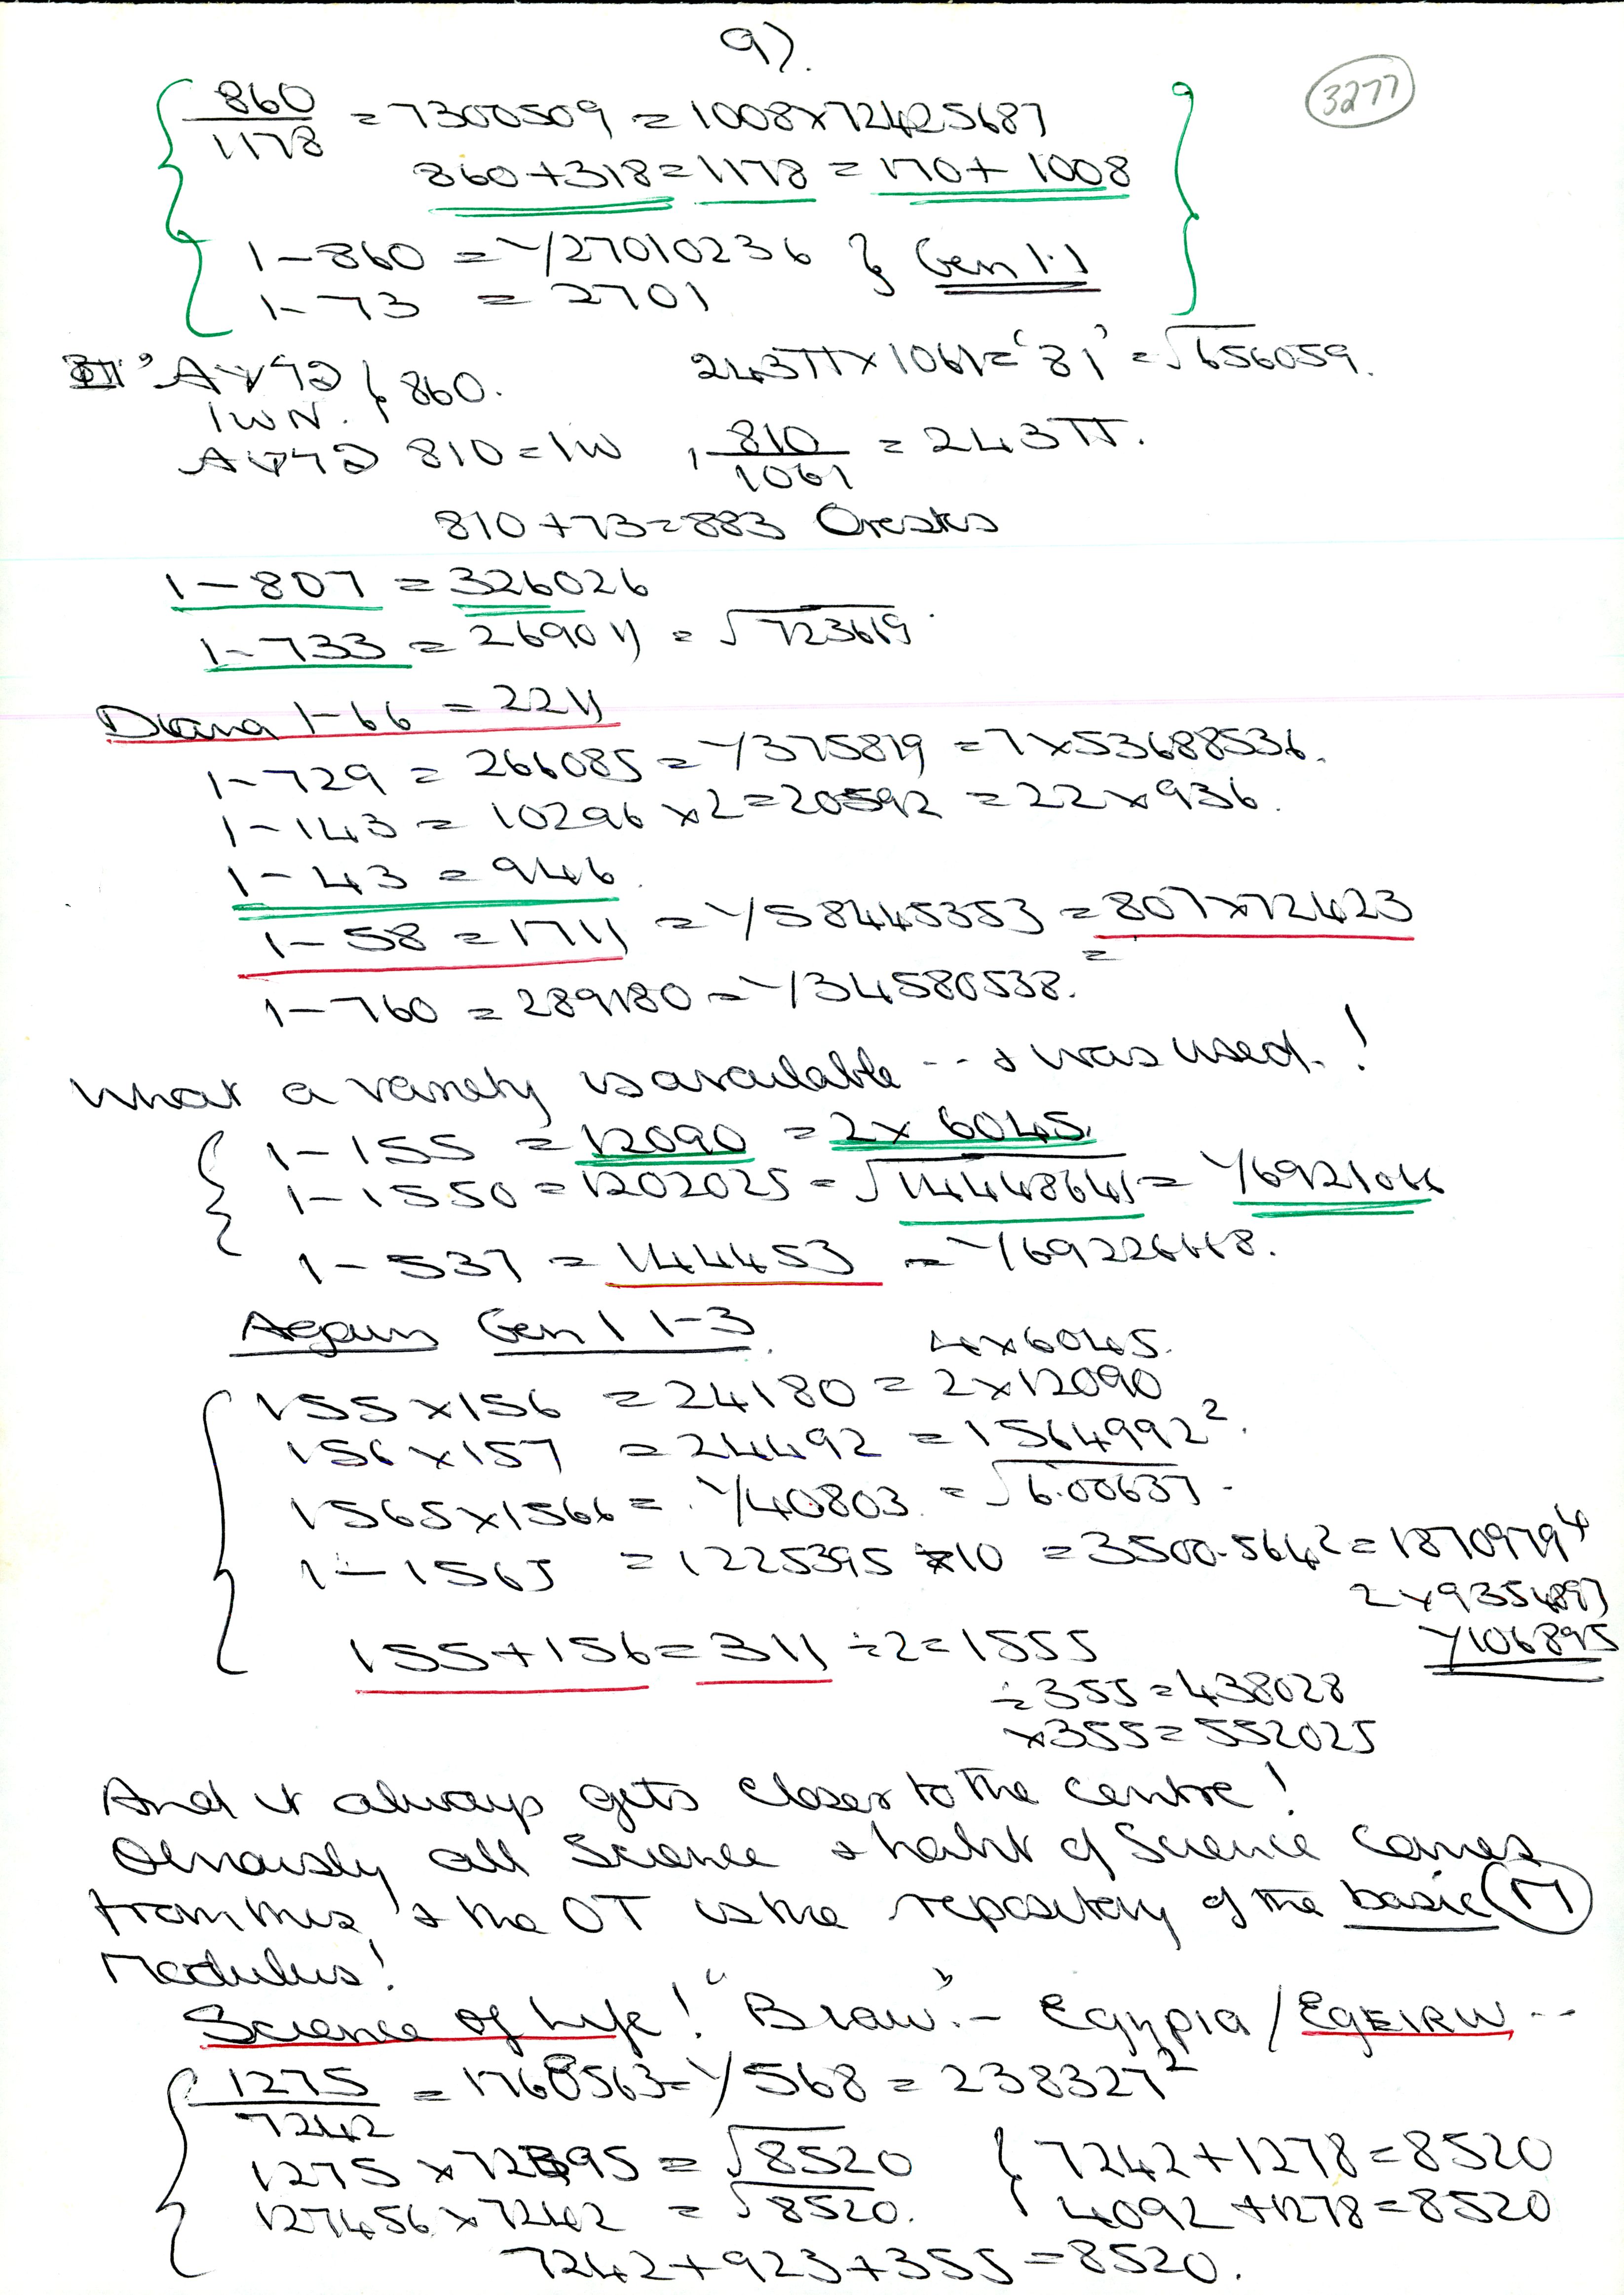 9).
3277
860/1178 = 7300509 = 1008×72425687
860+318=1178=170+1008
1-860 = 1/27010236 } Gen 1.1
1-73 = 2701
} 860. 243π×1061='81'=√656059.
IWN.
810=IW , 810/1061 = 243π.
810+73=883 Orestes
1-807 = 326026
1-733 = 269011 = √723619
Diana 1-66 = 2211
1-729 = 266085 = 1/375819 = 7×53688536.
1-143 = 10296×2=20592 = 22×936.
1-43 = 946.
1-58 = 1711 = 1/58445353 = 807×72423
=
1-760 = 289180 = 1/34580538.
What a variety is available --- & was used.!
1-155 = 12090 = 2×6045.
1-1550=1202025=√14448641= 1/6921066
1-537 = 144453 = 1/69226668.
Again Gen 1 1-3.
4×6045.
155×156 = 24180 = 2×12090
156×157 = 24492 = 1564992².
1565×1566 = 1/40803 = √6.00637.
1-1565 = 1225395 ×10 = 3500.564² = 1870979⁴
2×9354897
1/106895
155+156=311÷2=1555
÷355=438028
×355=552025
And it always gets closer to the centre!
Obviously all Science & habit of Science comes
from this, & the OT is the repository of the basic M
Modulus!
Science of Life! "Biaw". - Egypia/EgEIRW --
1275/7242 = 1760563=1/568 = 238327²
1275×72395 = √8520 { 7242+1278=8520
127456×7242 = √8520. 4092+1278=8520
7242+923+355=8520.